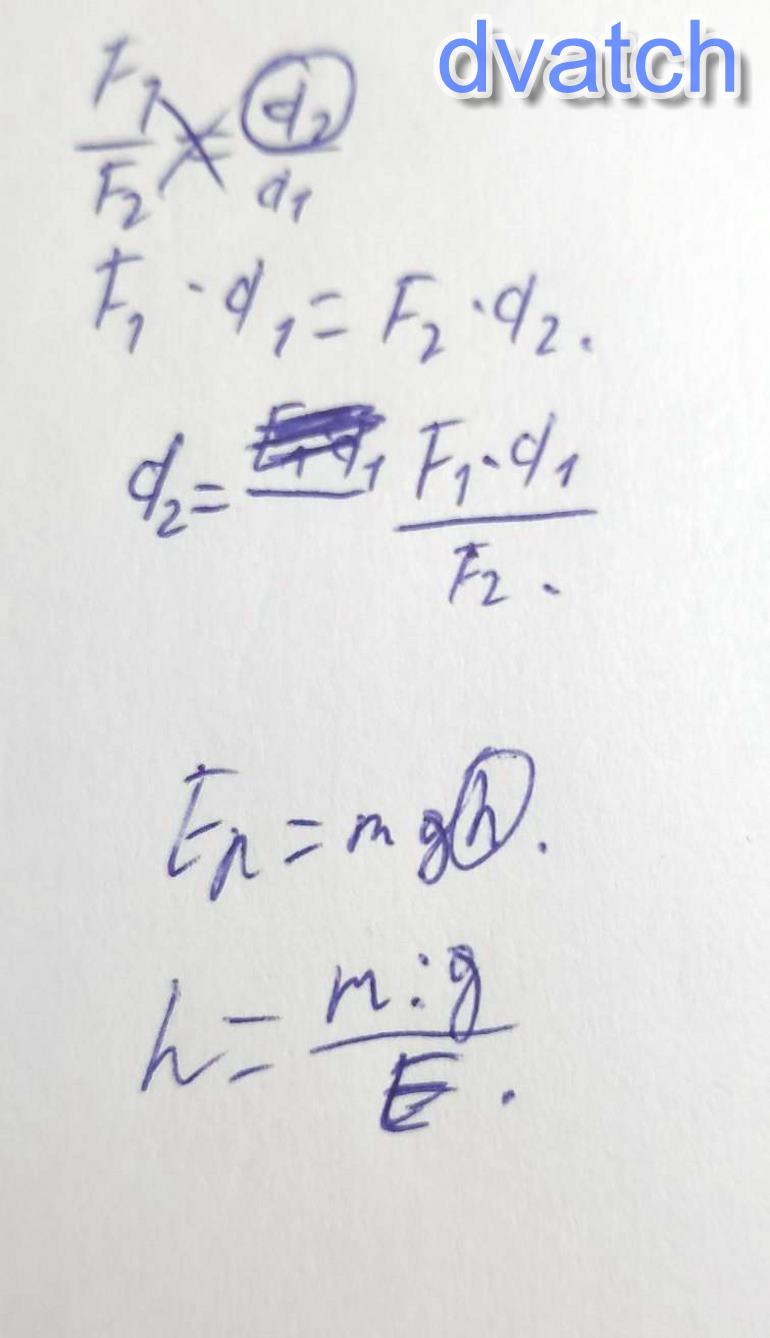 dvatch
F₁/F₂ = d₂/d₁
F₁ · d₁ = F₂ · d₂.
d₂ = F₁·d₁/F₂.
Eп = mgh.
h = m:g/E.